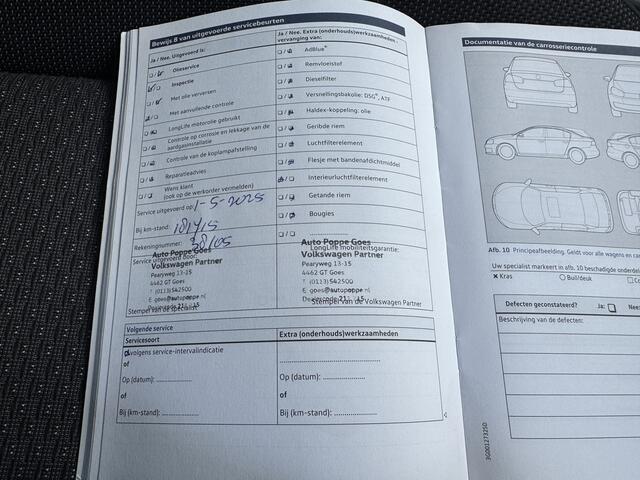 Bewijs 8 van uitgevoerde servicebeurten
Ja / Nee. Uitgevoerd is:
Olieservice
Inspectie
Met olie verversen
Met aanvullende controle
LongLife motorolie gebruikt
Controle op corrosie en lekkage van de
aardgasinstallatie
Controle van de koplampafstelling
Reparatieadvies
Wens klant
(ook op de werkorder vermelden)
Service uitgevoerd op: 1-5-2025
Bij km-stand: 181415
Rekeningnummer:
Service uitgevoerd door:
Auto Poppe Goes
Volkswagen Partner
Pearyweg 13-15
4462 GT Goes
T (0113) 542500
E goes@autopoppe.nl
Stempel van de specialist
Ja / Nee. Extra (onderhouds)werkzaamheden -
vervanging van:
AdBlue®
Remvloeistof
Dieselfilter
Versnellingsbakolie: DSG®, ATF
Haldex-koppeling: olie
Geribde riem
Luchtfilterelement
Flesje met bandenafdichtmiddel
Interieurluchtfilterelement
Getande riem
Bougies
LongLife mobiliteitsgarantie:
Auto Poppe Goes
Volkswagen Partner
Pearyweg 13-15
4462 GT Goes
T (0113) 542500
E goes@autopoppe.nl
Stempel van de Volkswagen Partner
Volgende service
Servicesoort
Extra (onderhouds)werkzaamheden
volgens service-intervalindicatie
of
Op (datum): ..............
of
Bij (km-stand): ..............
..............
of
Op (datum): ..............
of
Bij (km-stand): ..............
Documentatie van de carrosseriecontrole
Afb. 10 Principeafbeelding. Geldt voor alle wagens en car
Uw specialist markeert in afb. 10 beschadigde onderdel
× Kras
○ Buil/deuk
Defecten geconstateerd?
Ja:
Beschrijving van de defecten:
3G0012732SD